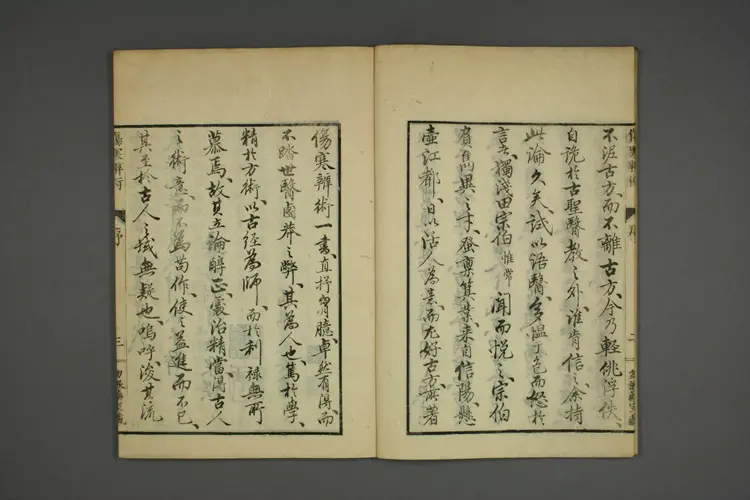 不泥古方而不離古方今乃輕佻浮佚
自詭於古聖醫教之外誰肯信之余持
此論久矣試以語醫多慍于色而怒於
言獨淺田宗伯惟常聞而悅之宗伯
負雋異之才發稟箕業來自信陽懸
壺江都日以活人為業而尤好古方所著
傷寒辨術一書直抒胸臆卓然有得而
不踏世醫鹵莽之弊其為人也篤於學
精於方術以古經為師而於利祿無所
慕焉故其立論醇正處治精當得古人
之術意而不為苟作使之益進而不已
其至於古人之域無疑也嗚呼後其流
傷寒辨術
序
二
傷寒辨術
序
三